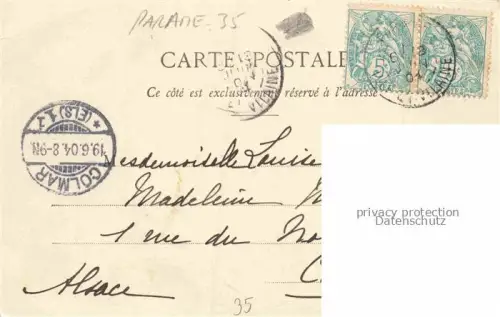 PARAME - 35
CARTE POSTALE
Ce côté est exclusivement réservé à l'adresse
5
COLMAR
19.6.04.8-9N.
* (ELS) 1 *
ILLE-ET-VILAINE
Mesdemoiselle Louise
Madeleine
1 rue du
Alsace
35
privacy protection
Datenschutz